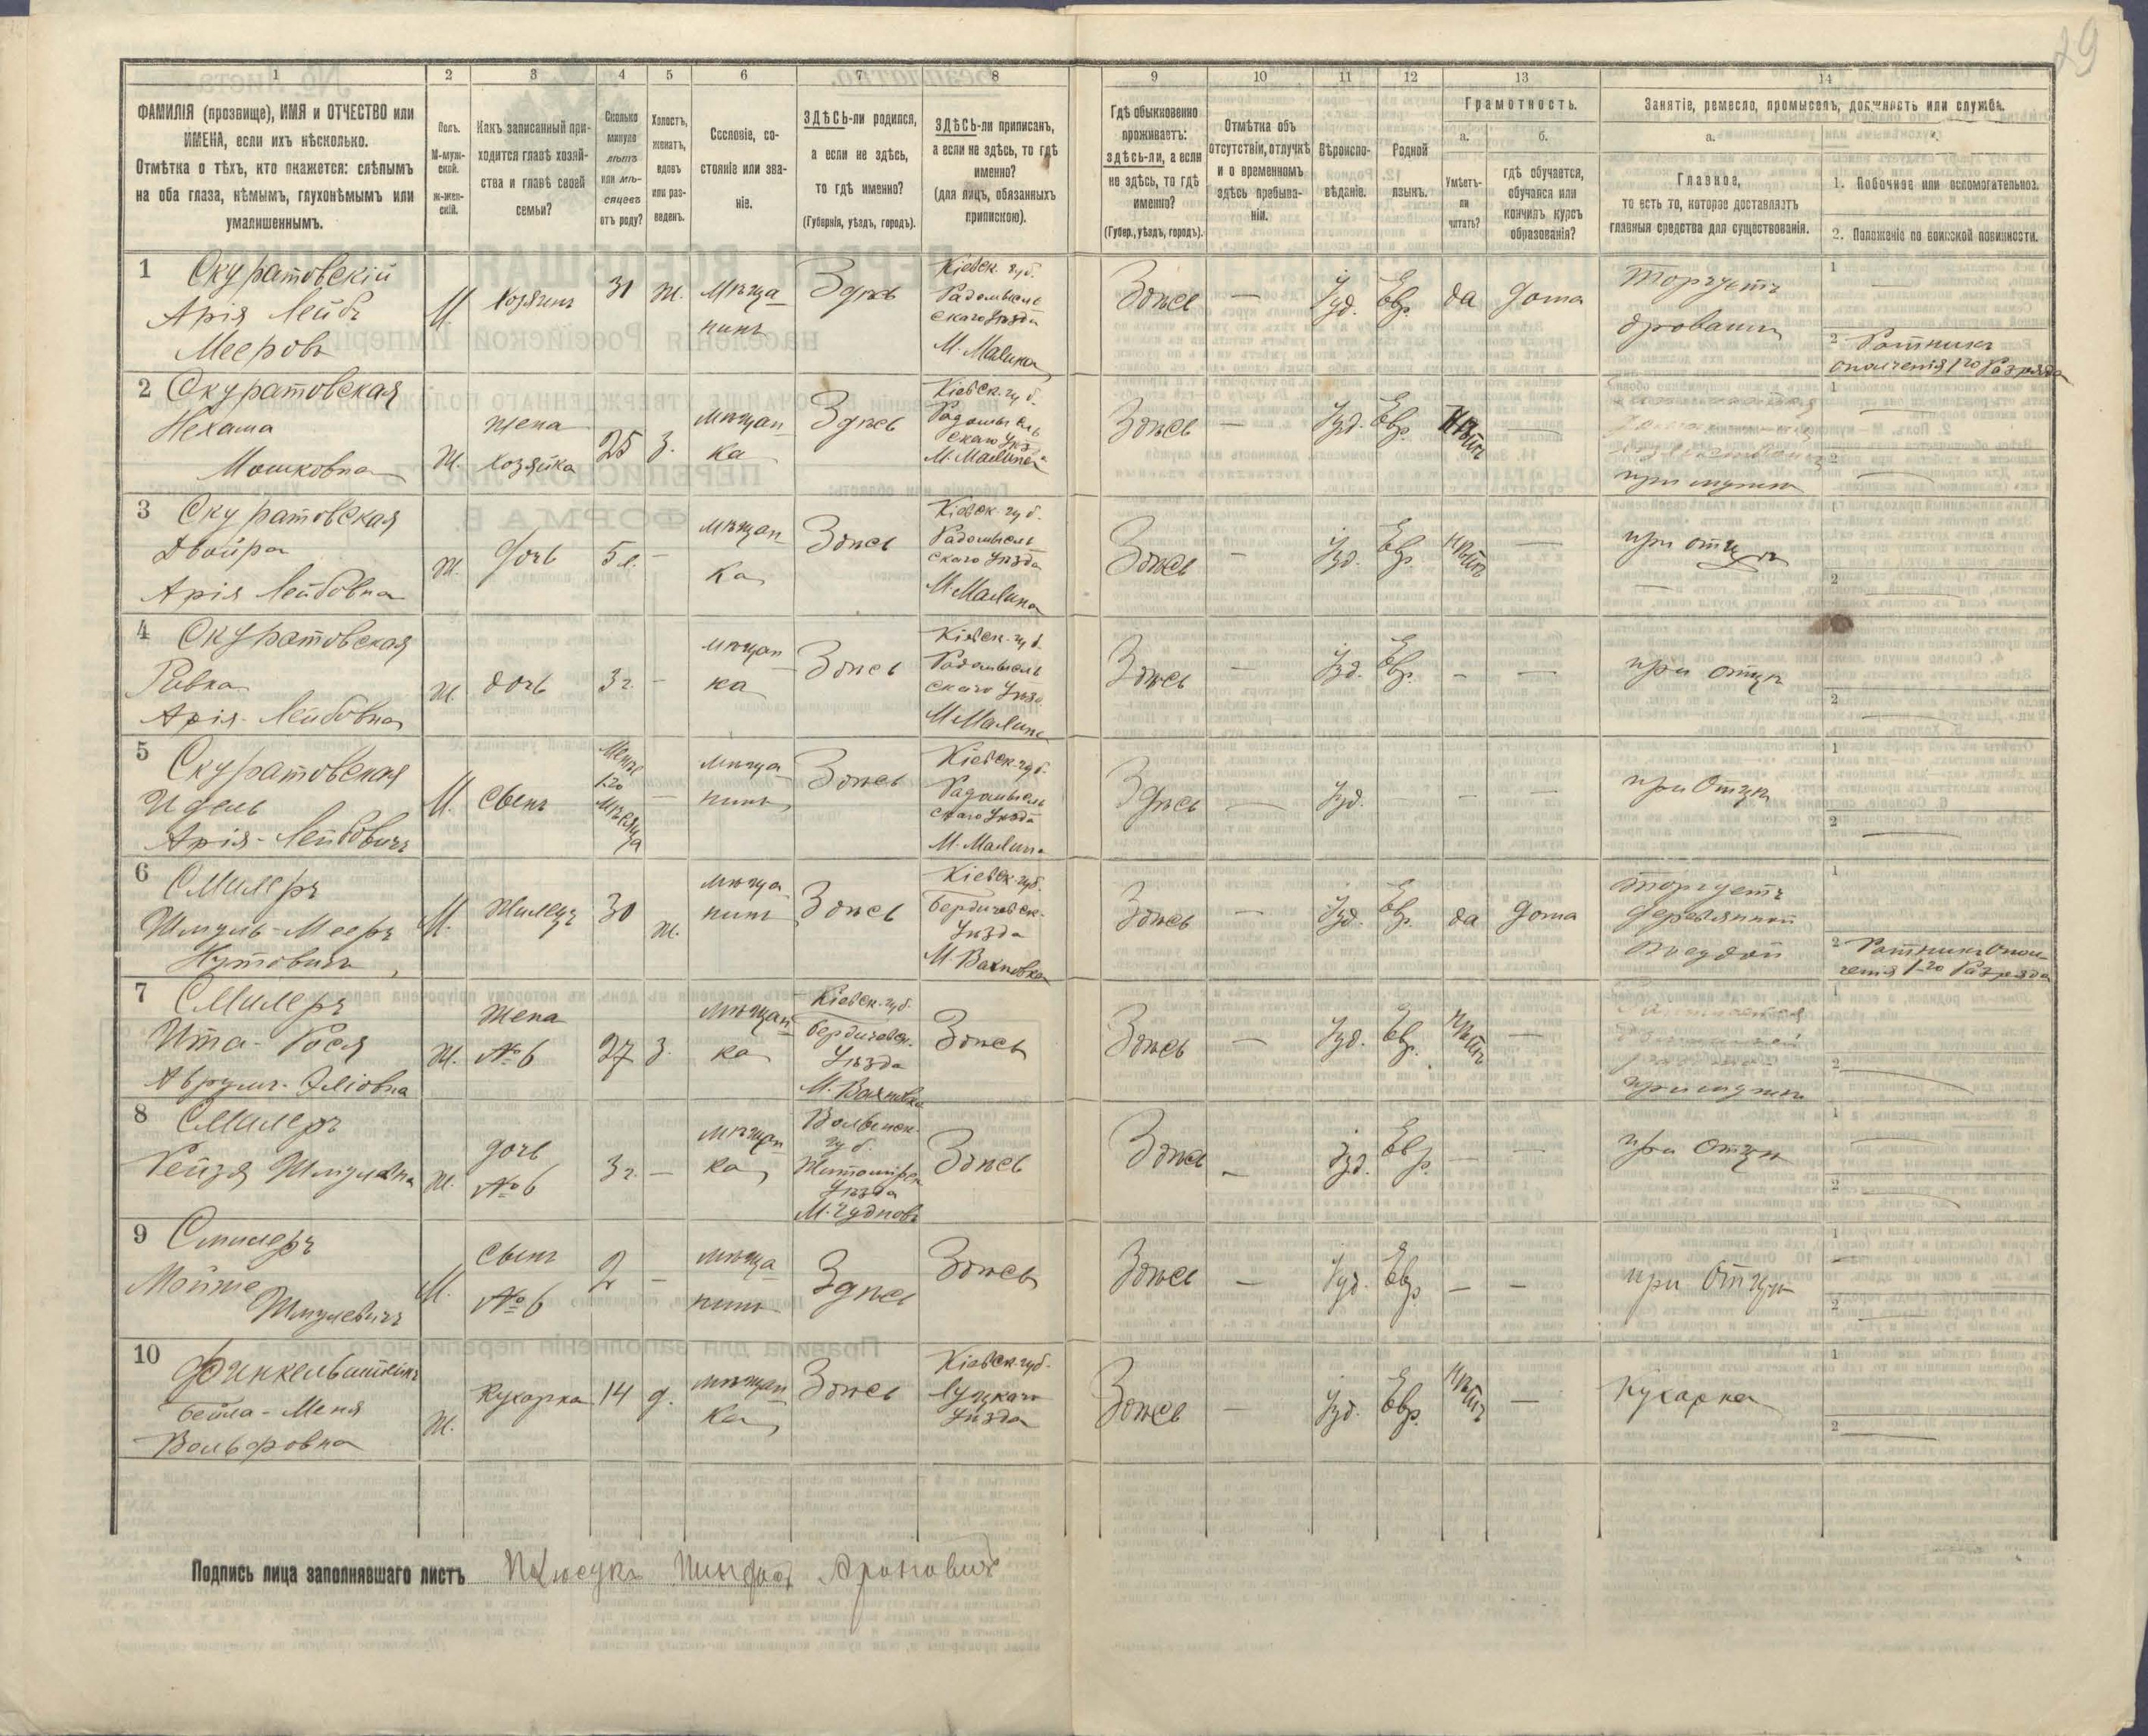 29
1
2
3
4
5
6
7
8
9
10
11
12
13
14
ФАМИЛІЯ (прозвище), ИМЯ и ОТЧЕСТВО или
ИМЕНА, если ихъ нѣсколько.
Отмѣтка о тѣхъ, кто окажется: слѣпымъ
на оба глаза, нѣмымъ, глухонѣмымъ или
умалишеннымъ.
Полъ.
М-муж-
ской.
ж-жен-
скій.
Какъ записанный при-
ходится главѣ хозяй-
ства и главѣ своей
семьи?
Сколько
минуло
лѣтъ
или мѣ-
сяцевъ
отъ роду?
Холостъ,
женатъ,
вдовъ
или раз-
веденъ.
Сословіе, со-
стояніе или зва-
ніе.
ЗДѢСЬ-ли родился,
а если не здѣсь,
то гдѣ именно?
(Губернія, уѣздъ, городъ).
ЗДѢСЬ-ли приписанъ,
а если не здѣсь, то гдѣ
именно?
(для лицъ, обязанныхъ
припискою).
Гдѣ обыкновенно
проживаетъ:
здѣсь-ли, а если
не здѣсь, то гдѣ
именно?
(Губер., уѣздъ, городъ).
Отмѣтка объ
отсутствіи, отлучкѣ
и о временномъ
здѣсь пребыва-
ніи.
Вѣроиспо-
вѣданіе.
Родной
языкъ.
Грамотность.
а.
Умѣетъ-
ли
читать?
б.
гдѣ обучается,
обучался или
кончилъ курсъ
образованія?
Занятіе, ремесло, промыселъ, должность или служба.
а.
Главное,
то есть то, которое доставляетъ
главныя средства для существованія.
1. Побочное или вспомогательное.
2. Положеніе по воинской повинности.
1 Скуратовскій
Арія Лейбъ
Мееровъ
М.
Хозяинъ
31
ж.
Мѣща
нинъ
Здѣсь
Кіевск. губ.
Радомысль
скаго Уѣзда
М. Малина
Здѣсь
—
Іуд.
Евр.
да
дома
Торгуетъ
дровами
1 —
2 Ратникъ
ополченія 1го Разряда
2 Скуратовская
Нехама
Мошковна
Ж.
жена
Хозяйка
25
З.
мѣщан
ка
Здѣсь
Кіевск. губ.
Радомысль
скаго Уѣзда
М. Малина
Здѣсь
—
Іуд.
Евр.
Нѣтъ
—
при мужѣ
1 —
2 —
3 Скуратовская
Двойра
Арія Лейбовна
Ж.
дочь
5 л.
—
мѣщан
ка
Здѣсь
Кіевск. губ.
Радомысль
скаго Уѣзда
М. Малина
Здѣсь
—
Іуд.
Евр.
Нѣтъ
—
при отцѣ
1
2 —
4 Скуратовская
Ривка
Арія-Лейбовна
Ж.
дочь
3 г.
—
мѣщан
ка
Здѣсь
Кіевск. губ.
Радомысль
скаго Уѣзд
М. Малина
Здѣсь
—
Іуд.
Евр.
—
—
при отцѣ
2 —
5 Скуратовская
Идель
Арія-Лейбовичъ
М.
сынъ
Менѣе
1го
Мѣсяц
а
—
мѣща
нинъ
Здѣсь
Кіевск. губ.
Радомысль
скаго Уѣзда
М. Малина
Здѣсь
—
Іуд.
—
—
—
при Отцѣ
1 —
2 —
6 Смилеръ
Шмуль-Мееръ
Нутовичъ
М.
Жилецъ
30
ж.
мѣща
нинъ
Здѣсь
Кіевск. губ.
Бердичевск.
Уѣзда
М. Вахновка
Здѣсь
—
Іуд.
Евр.
да
дома
Торгуетъ
деревянной
1
2 Ратникъ Опол-
ченія 1го Разряда
7 Смилеръ
Ита-Рося
Аврумъ-Эліовна
Ж.
жена
№ 6
27
З.
мѣщан
ка
Кіевск. губ.
Бердичевск.
Уѣзда
М. Вахновка
Здѣсь
Здѣсь
—
Іуд.
Евр.
Нѣтъ
—
при мужѣ
1
2 —
8 Смилеръ
Рейзя Шмулевна
Ж.
дочь
№ 6
3 г.
—
мѣщан
ка
Волынск.
губ.
Житомирск
Уѣзда
М. Чудновъ
Здѣсь
Здѣсь
—
Іуд.
Евр.
—
—
при Отцѣ
1 —
2 —
9 Смилеръ
Мойше
Шмулевичъ
М.
сынъ
№ 6
2
—
мѣща
нинъ
Здѣсь
Здѣсь
Здѣсь
—
Іуд.
Евр.
—
—
при Отцѣ
1 —
2 —
10 Финкельштейнъ
Бейла-Меня
Вольфовна
Ж.
Кухарка
14
д.
мѣщан
ка
Здѣсь
Кіевск. губ.
Уѣзда
Здѣсь
—
Іуд.
Евр.
Нѣтъ
—
Кухарка
1
2 —
Подпись лица заполнявшаго листъ
Ароновичъ